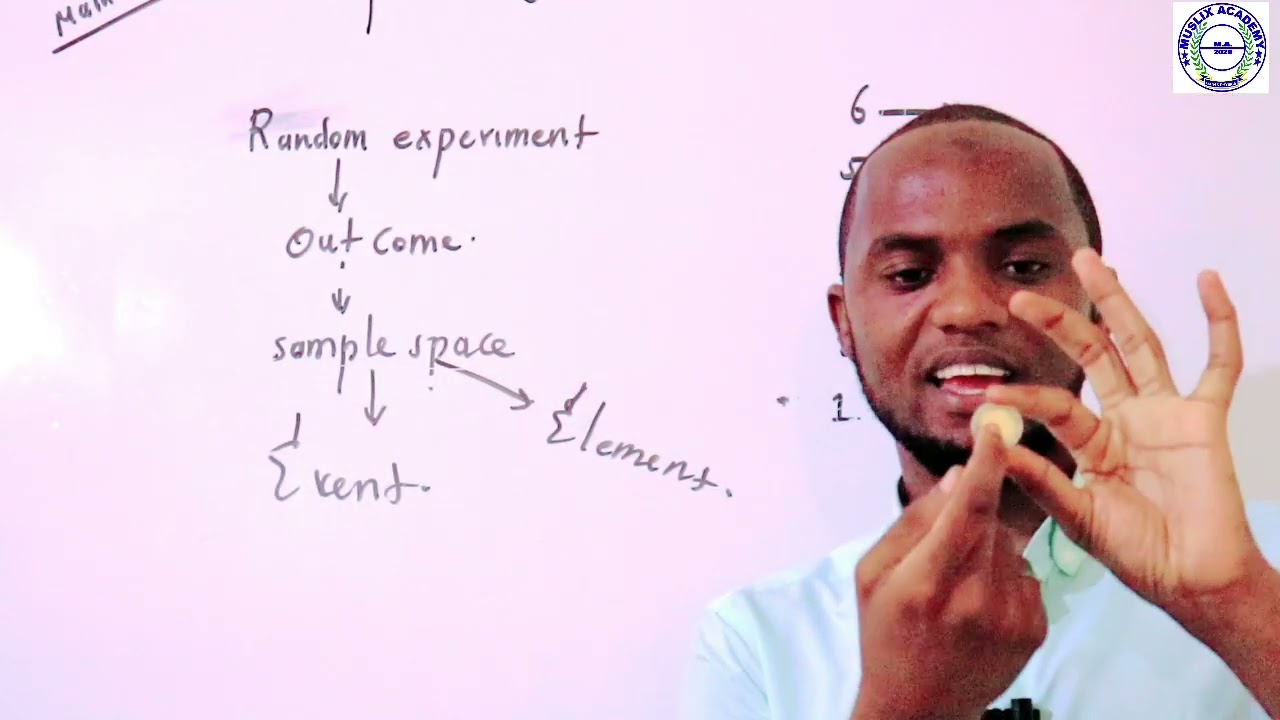 Random experiment
Out come.
sample space
Element.
Event.
6
5
1.
MUSLIX ACADEMY
M.A.
2020